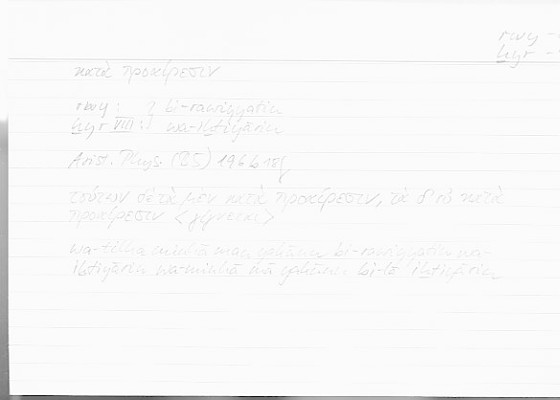 rwy -
ḫyr -
κατὰ προαίρεσιν
rwy : bi-rawiyyatin
ḫyr VIII : wa-iḫtiyārin
Arist. Phys. (B5) 196b18f
τούτων δὲ τὰ μὲν κατὰ προαίρεσιν, τὰ δ' οὐ κατὰ
προαίρεσιν <γίνεται>
wa-tilka minhā mā yakūnu bi-rawiyyatin wa-
iḫtiyārin wa-minhā mā yakūnu bi-lā iḫtiyārin